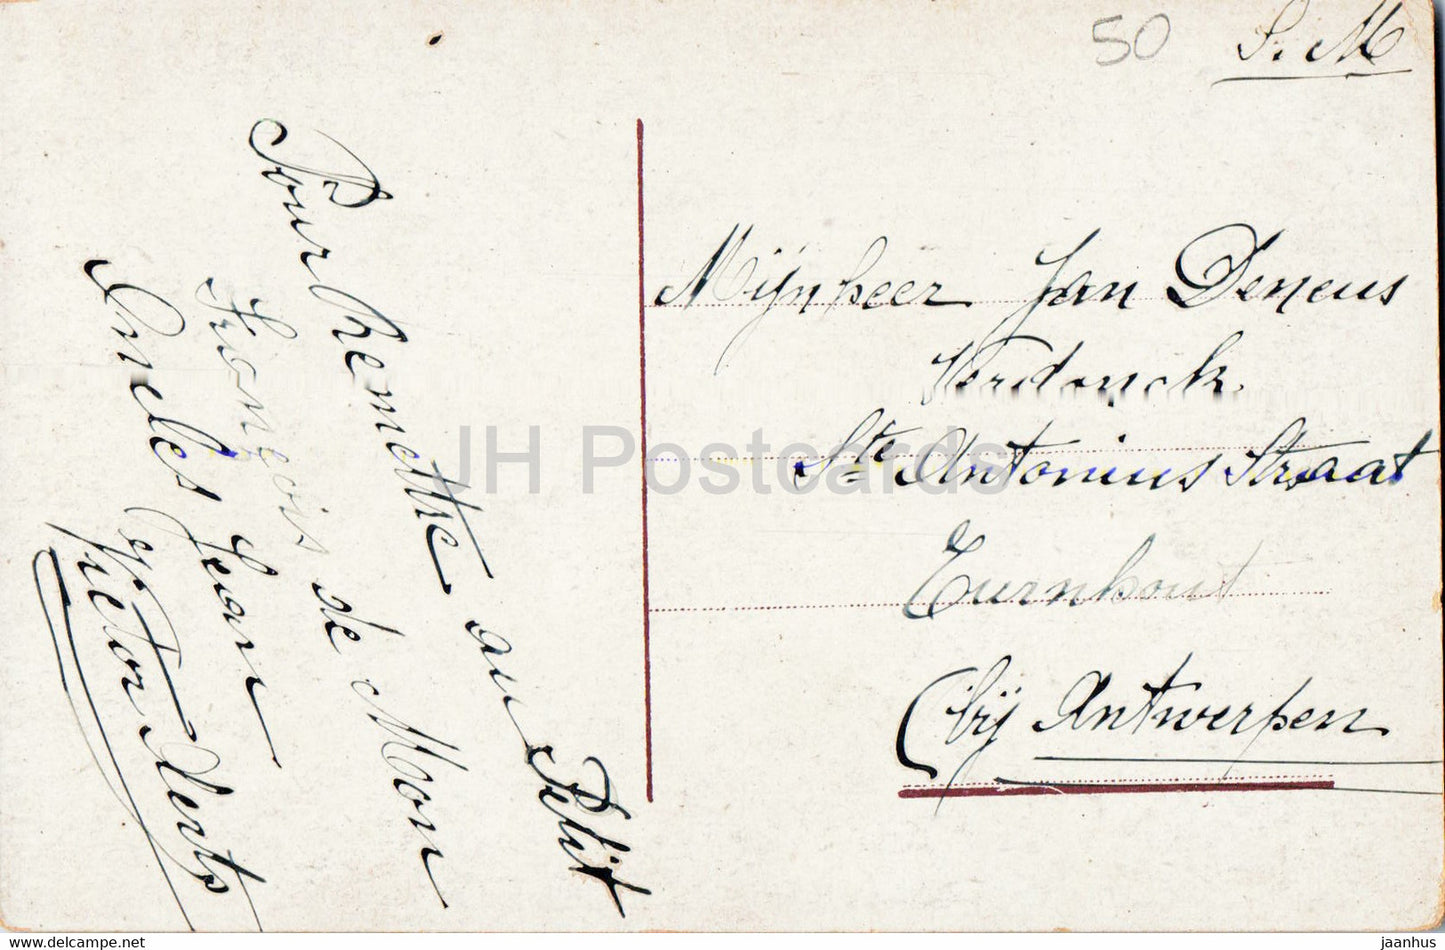 50
S. M
Pour Remettre au Petit
François de Mon
Oncles Jean
et Victor Aerts
Mijnheer Jan Deneus
Verdonck.
Ste Antonius Straat
Turnhout
(bij Antwerpen
JH Postcards
www.delcampe.net
jaanhus